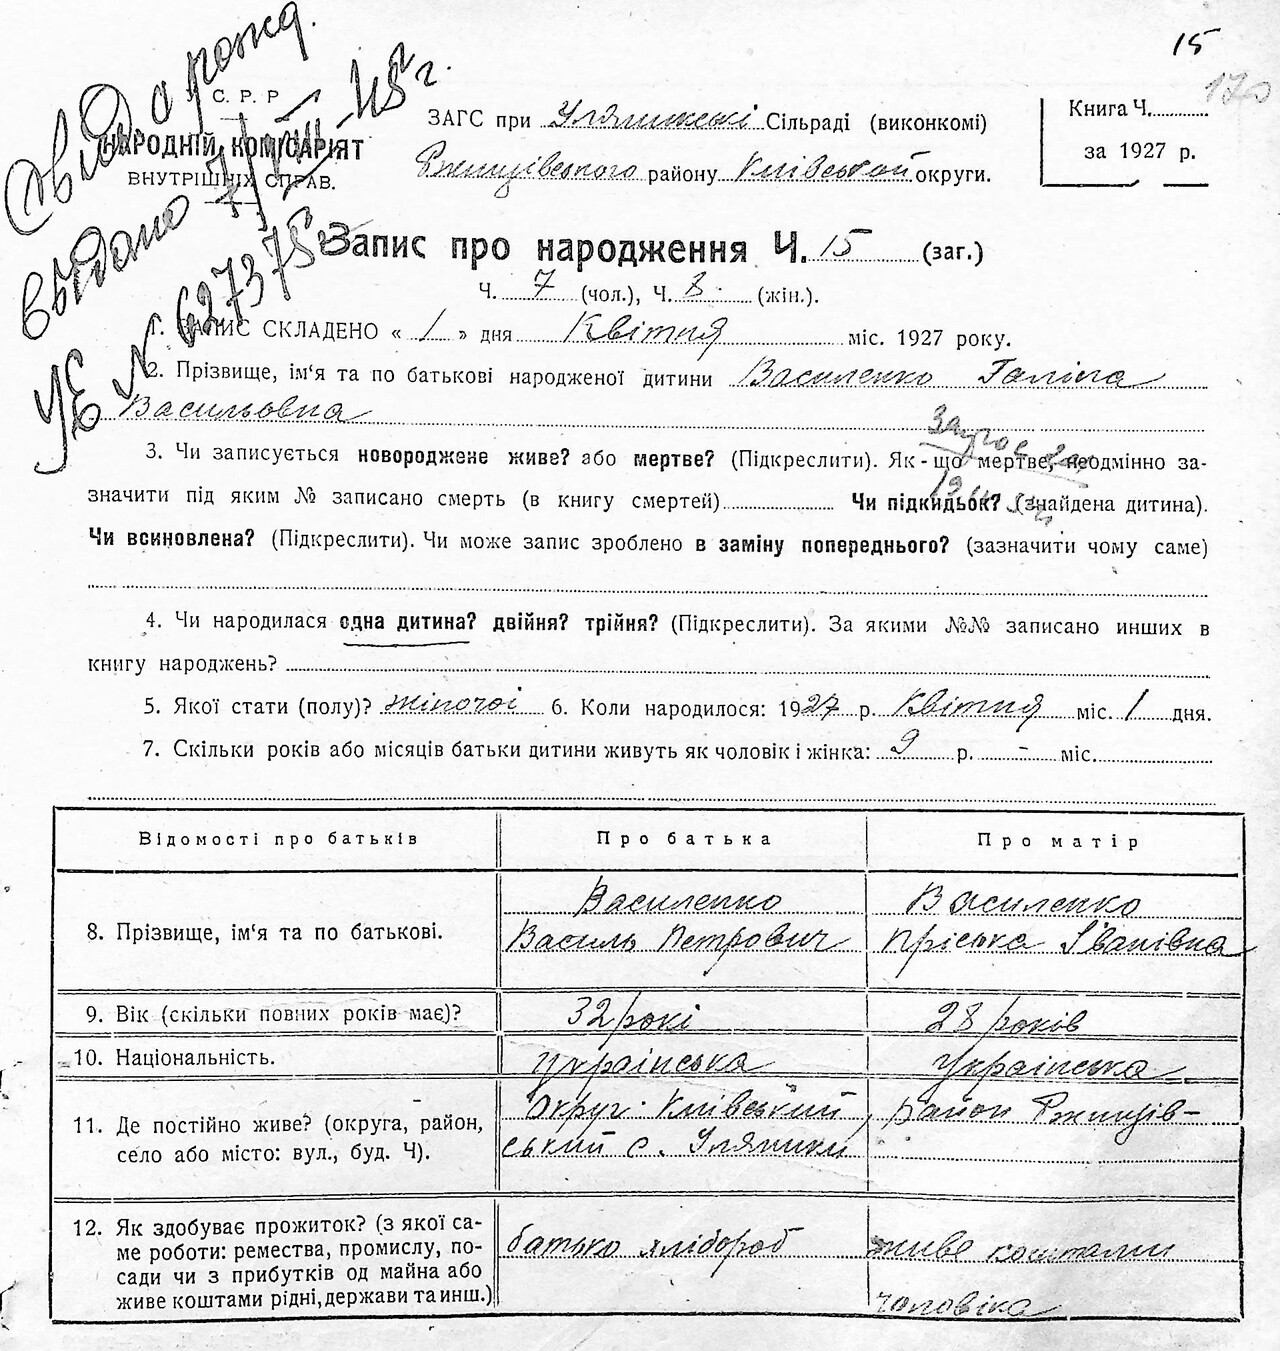 15
170
Свід о рожд.
выдано 7/VIII-45 г.
УЕ № 627375
С. Р. Р
НАРОДНІЙ КОМІСАРІЯТ
ВНУТРІШНІХ СПРАВ.
ЗАГС при Улянинські Сільраді (виконкомі)
Ржищівського району Київської округи.
Книга Ч.
за 1927 р.
Запис про народження Ч. 15 (заг.)
Ч. 7 (чол.), Ч. 8. (жін.).
1. ЗАПИС СКЛАДЕНО « 1 » дня Квітня міс. 1927 року.
2. Прізвище, ім'я та по батькові народженої дитини Василенко Галіна
Васильовна
3. Чи записується новороджене живе? або мертве? (Підкреслити). Як-що мертве, неодмінно за-
значити під яким № записано смерть (в книгу смертей) Чи підкидьок? (знайдена дитина).
Чи всиновлена? (Підкреслити). Чи може запис зроблено в заміну попереднього? (зазначити чому саме)
4. Чи народилася одна дитина? двійня? трійня? (Підкреслити). За якими №№ записано инших в
книгу народжень?
5. Якої стати (полу)? жіночоі 6. Коли народилося: 1927 р. Квітня міс. 1 дня.
7. Скільки років або місяців батьки дитини живуть як чоловік і жінка: 9 р. - міс.
Відомості про батьків Про батька Про матір
8. Прізвище, ім'я та по батькові.
Василенко
Василь Петрович
Василенко
Пріська Іванівна
9. Вік (скільки повних років має)? 32 рокі 28 років
10. Національність. Українська Українська
11. Де постійно живе? (округа, район,
село або місто: вул., буд. Ч).
Округ Київський, район Ржищів-
ський с. Уляники
12. Як здобуває прожиток? (з якої са-
ме роботи: ремества, промислу, по-
сади чи з прибутків од майна або
живе коштами рідні, держави та инш.)
батько хлібороб
живе коштами
чоловіка